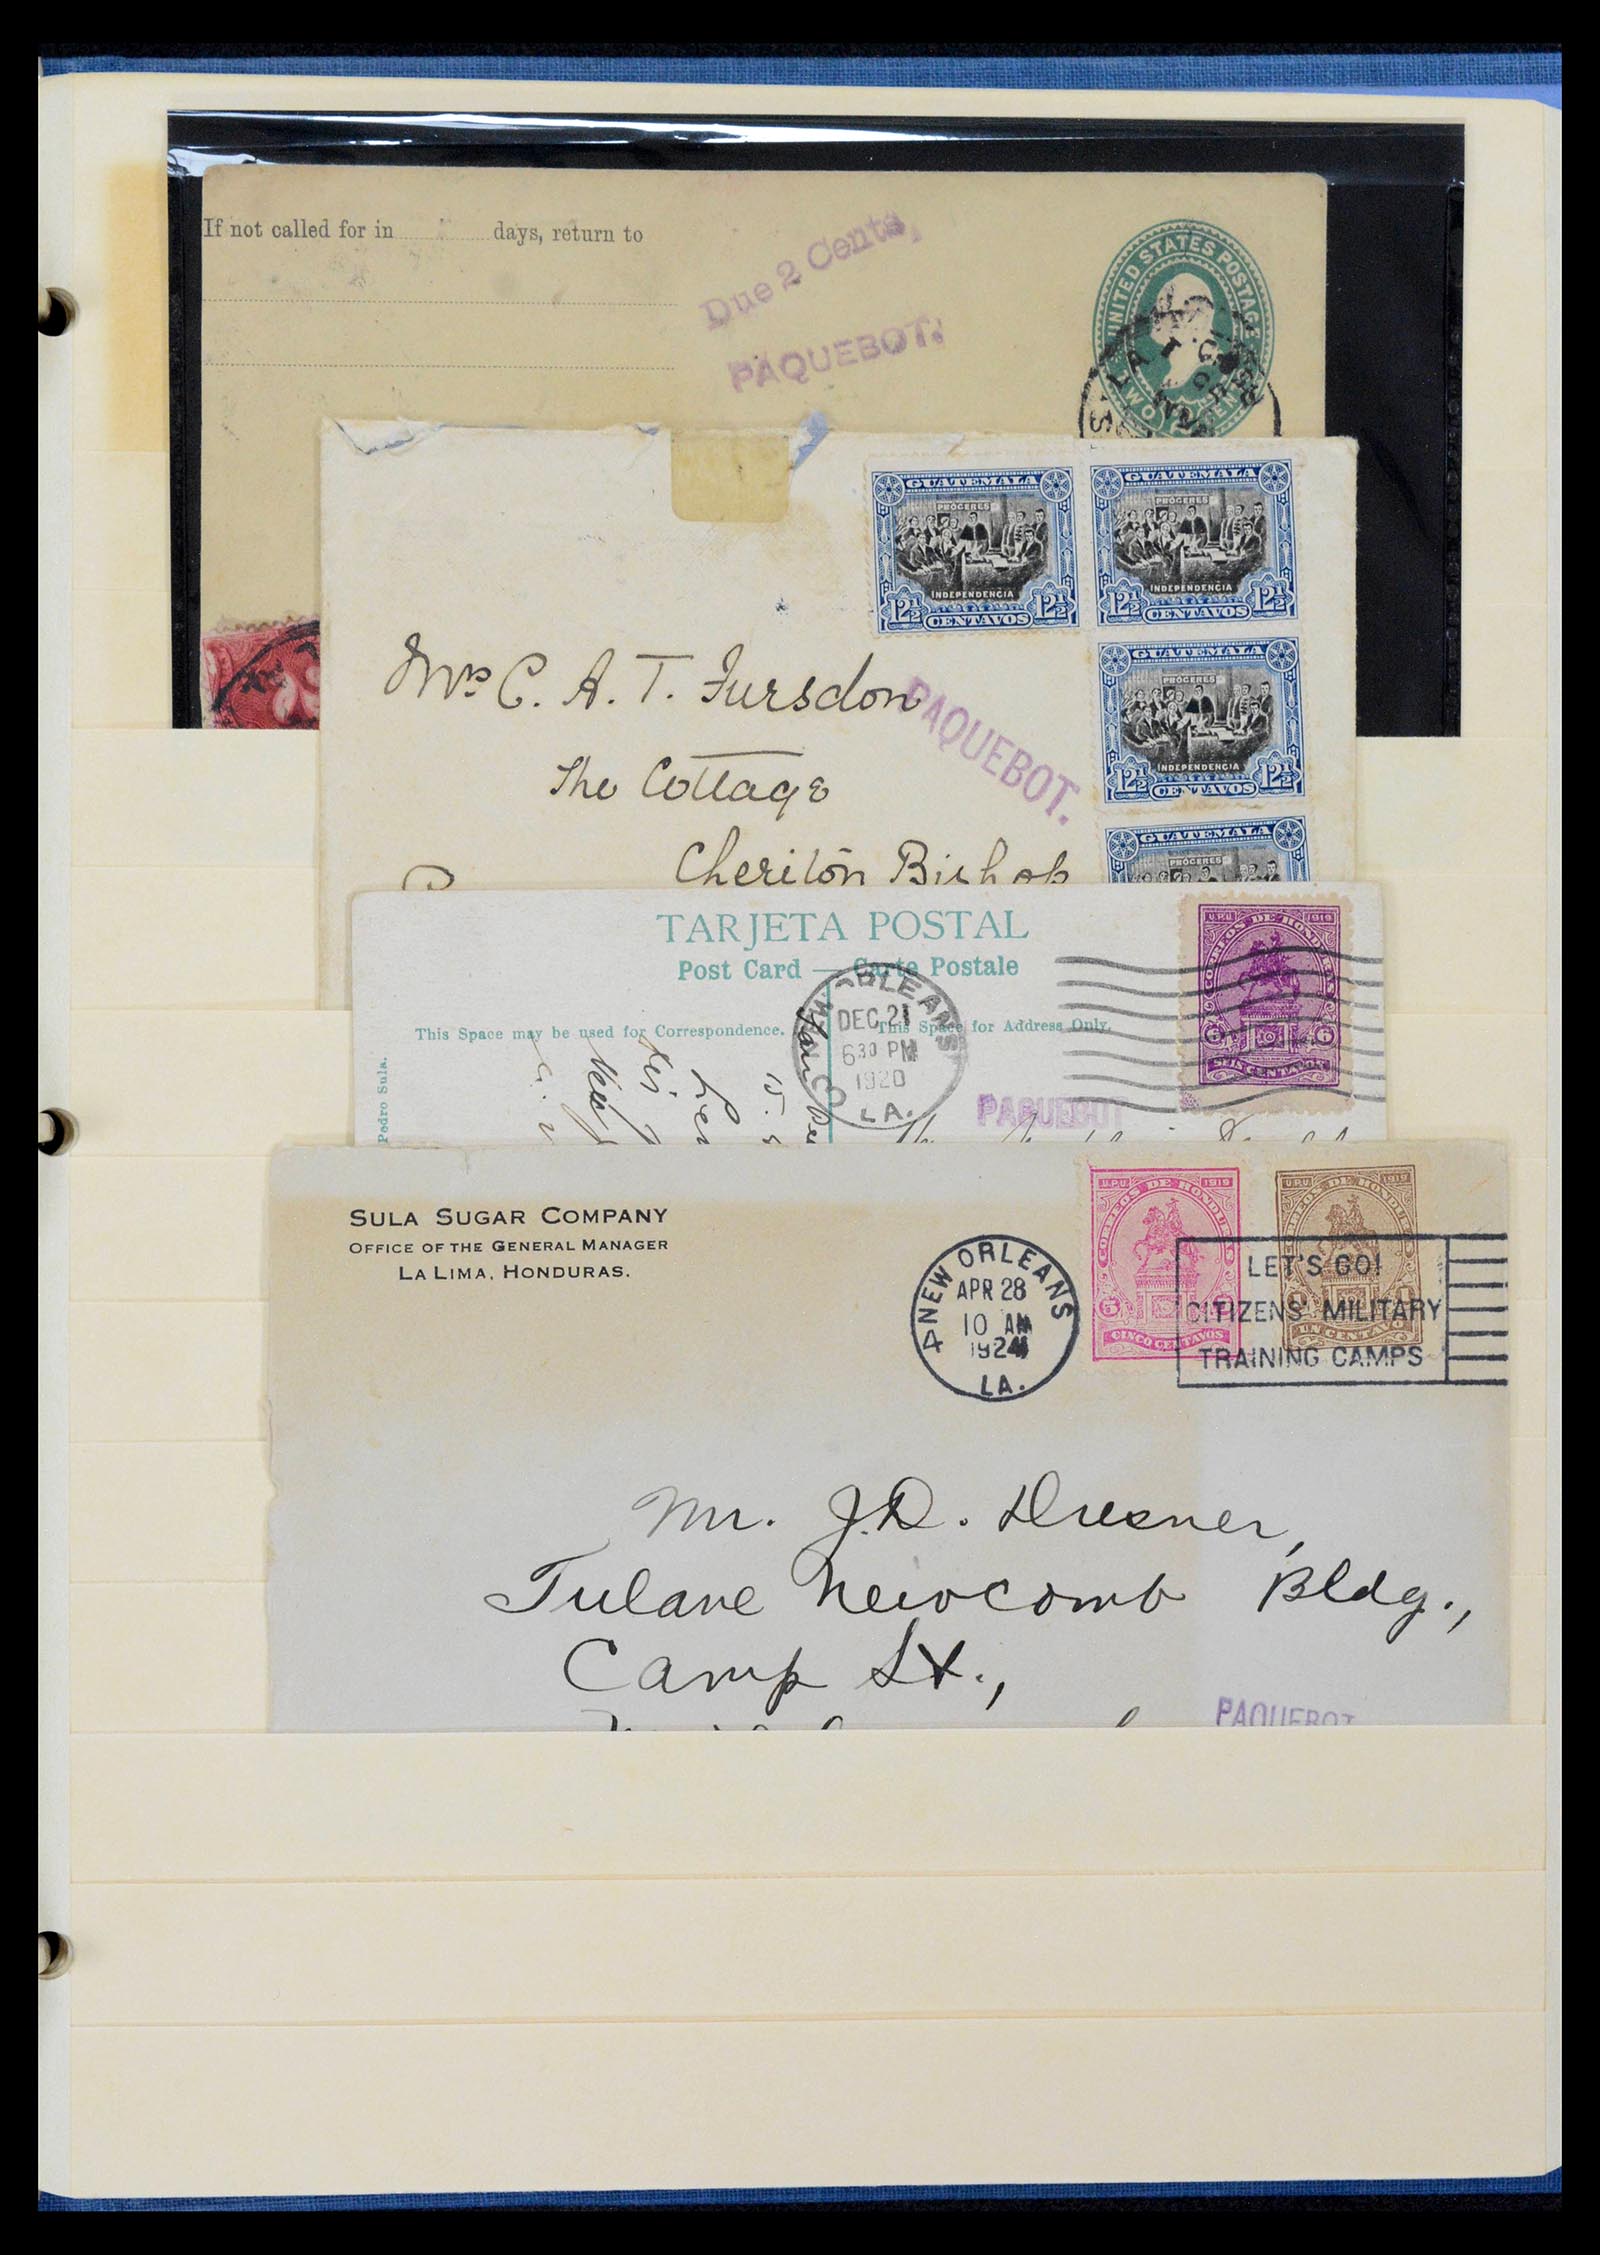 If not called for in days, return to
Due 2 Cents,
PAQUEBOT.
UNITED STATES POSTAGE
TWO CENTS
GUATEMALA
PRÓCERES
INDEPENDENCIA
12½ 12½
CENTAVOS
GUATEMALA
PRÓCERES
INDEPENDENCIA
12½ 12½
CENTAVOS
GUATEMALA
PRÓCERES
INDEPENDENCIA
12½ 12½
CENTAVOS
GUATEMALA
PRÓCERES
Mrs C. A. T. Fursdon
PAQUEBOT.
The Cottage
Cheriton Bishop
TARJETA POSTAL
Post Card — Carte Postale
This Space may be used for Correspondence.
This Space for Address Only.
Pedro Sula.
NEW ORLEANS
DEC 21
6 30 PM
1920
LA.
PAQUEBOT
U.P.U. 1919
CORREOS DE HONDURAS
6 6
SEIS CENTAVOS
SULA SUGAR COMPANY
OFFICE OF THE GENERAL MANAGER
LA LIMA, HONDURAS.
NEW ORLEANS
APR 28
10 AM
1924
LA.
4
U.P.U. 1919
CORREOS DE HONDURAS
5
CINCO CENTAVOS
U.P.U. 1919
CORREOS DE HONDURAS
1 1
UN CENTAVO
LET'S GO!
CITIZENS' MILITARY
TRAINING CAMPS
Mr. J.D. Dresner,
Tulane Newcomb Bldg.,
Camp St.,
PAQUEBOT